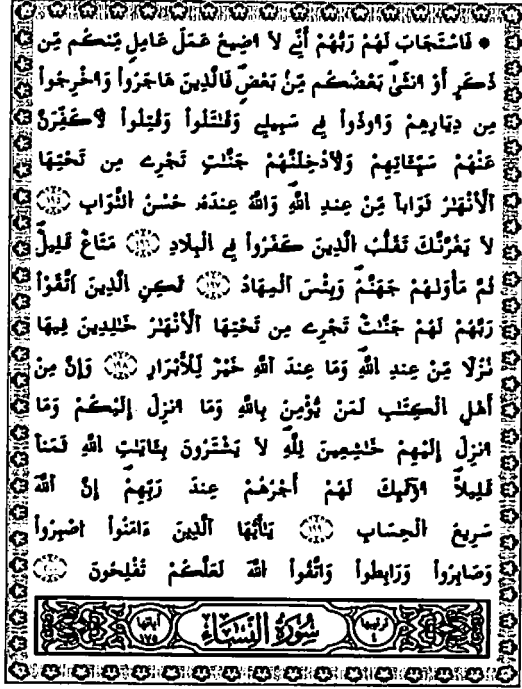 * فَاسْتَجَابَ لَهُمْ رَبُّهُمْ أَنِّے لَا أُضِيعُ عَمَلَ عَامِلٍ مِّنكُم مِّن
ذَكَرٍ أَوْ اُنثَىٰ بَعْضُكُم مِّنۢ بَعْضٍ فَالَّذِينَ هَاجَرُواْ وَأُخْرِجُواْ
مِن دِيَارِهِمْ وَأُوذُواْ فِے سَبِيلِے وَقَٰتَلُواْ وَقُتِلُواْ لَأُكَفِّرَنَّ
عَنْهُمْ سَيِّـَٔاتِهِمْ وَلَأُدْخِلَنَّهُمْ جَنَّٰتٍ تَجْرِے مِن تَحْتِهَا
اَلْأَنْهَٰرُ ثَوَاباً مِّنْ عِندِ اِللَّهِ وَاللَّهُ عِندَهُۥ حُسْنُ الثَّوَابِ ١٩٥
لَا يَغُرَّنَّكَ تَقَلُّبُ الَّذِينَ كَفَرُواْ فِے الْبِلَادِ ١٩٦ مَتَاعٌ قَلِيلٌ
ثُمَّ مَأْوَىٰهُمْ جَهَنَّمُ وَبِئْسَ اَلْمِهَادُ ١٩٧ لَٰكِنِ الَّذِينَ اَتَّقَوْاْ
رَبَّهُمْ لَهُمْ جَنَّٰتٌ تَجْرِے مِن تَحْتِهَا اَلْأَنْهَٰرُ خَٰلِدِينَ فِيهَا
نُزُلًا مِّنْ عِندِ اِللَّهِ وَمَا عِندَ اَللَّهِ خَيْرٌ لِّلْأَبْرَارِ ١٩٨ وَإِنَّ مِنْ
أَهْلِ اِلْكِتَٰبِ لَمَنْ يُّؤْمِنُ بِاللَّهِ وَمَا أُنزِلَ إِلَيْكُمْ وَمَا
أُنزِلَ إِلَيْهِمْ خَٰشِعِينَ لِلَّهِ لَا يَشْتَرُونَ بِـَٔايَٰتِ اِللَّهِ ثَمَناً
قَلِيلاً أُوْلَٰٓئِكَ لَهُمْ أَجْرُهُمْ عِندَ رَبِّهِمْ إِنَّ اَللَّهَ
سَرِيعُ اُلْحِسَابِ ١٩٩ يَٰأَيُّهَا اَلَّذِينَ ءَامَنُواْ اُصْبِرُواْ
وَصَابِرُواْ وَرَابِطُواْ وَاتَّقُواْ اللَّهَ لَعَلَّكُمْ تُفْلِحُونَ ٢٠٠
ترتيبها ٤ سُورَةُ النِّسَاءِ آياتها ١٧٥